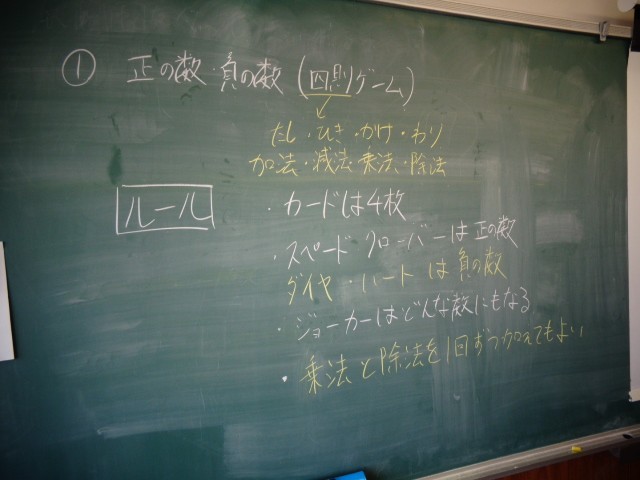 ① 正の数・負の数 (四則ゲーム)
たし・ひき・かけ・わり
加法・減法・乗法・除法
ルール
・カードは4枚
・スペード クローバーは正の数
ダイヤ・ハートは負の数
・ジョーカーはどんな数にもなる
・乗法と除法を1回ずつ加えてもよい